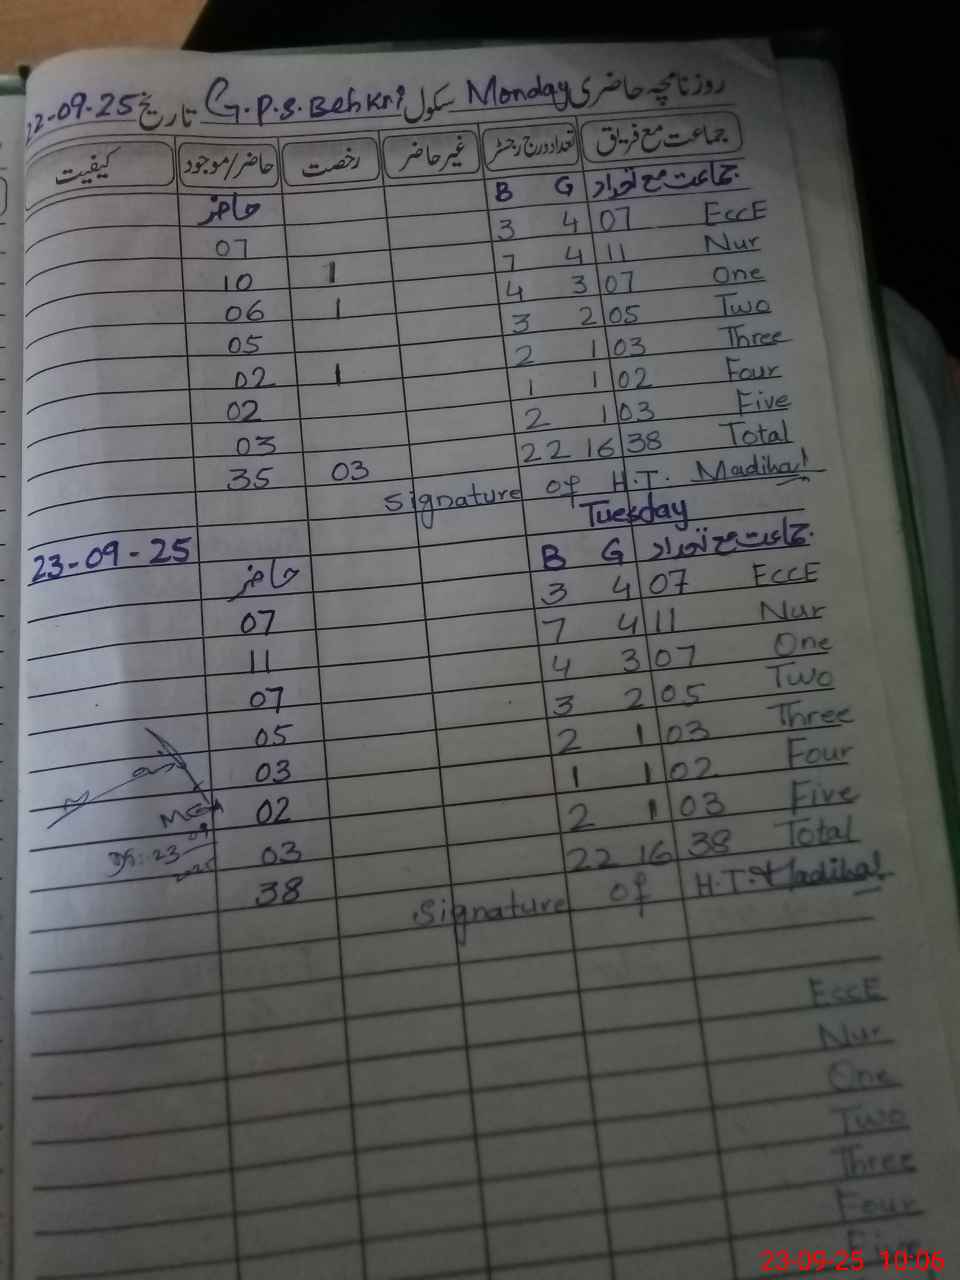 روزنامچہ حاضری Monday سکول G.P.S. Behkri تاریخ 22-09-25
جماعت مع فریق تعداد درج رجسٹر غیر حاضر رخصت حاضر/موجود کیفیت
جماعت مع تعداد B G حاضر
EccE 07 4 3 07
Nur 11 4 7 1 10
One 07 3 4 1 06
Two 05 2 3 05
Three 03 1 2 1 02
Four 02 1 1 02
Five 03 1 2 03
Total 38 16 22 03 35
Signature of H.T. Madiha
Tuesday
23-09-25
جماعت مع تعداد B G حاضر
EccE 07 4 3 07
Nur 11 4 7 11
One 07 3 4 07
Two 05 2 3 05
Three 03 1 2 03
Four 02 1 1 02
Five 03 1 2 03
Total 38 16 22 38
MEA
23 09
2025
Signature of H.T. Madiha
EccE
Nur
One
Two
Three
Four
Five
23-09-25 10:06